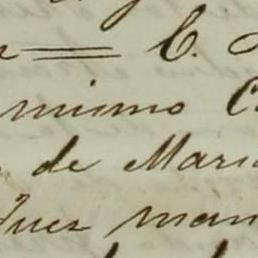 C.
mismo
de Mari
Juez man